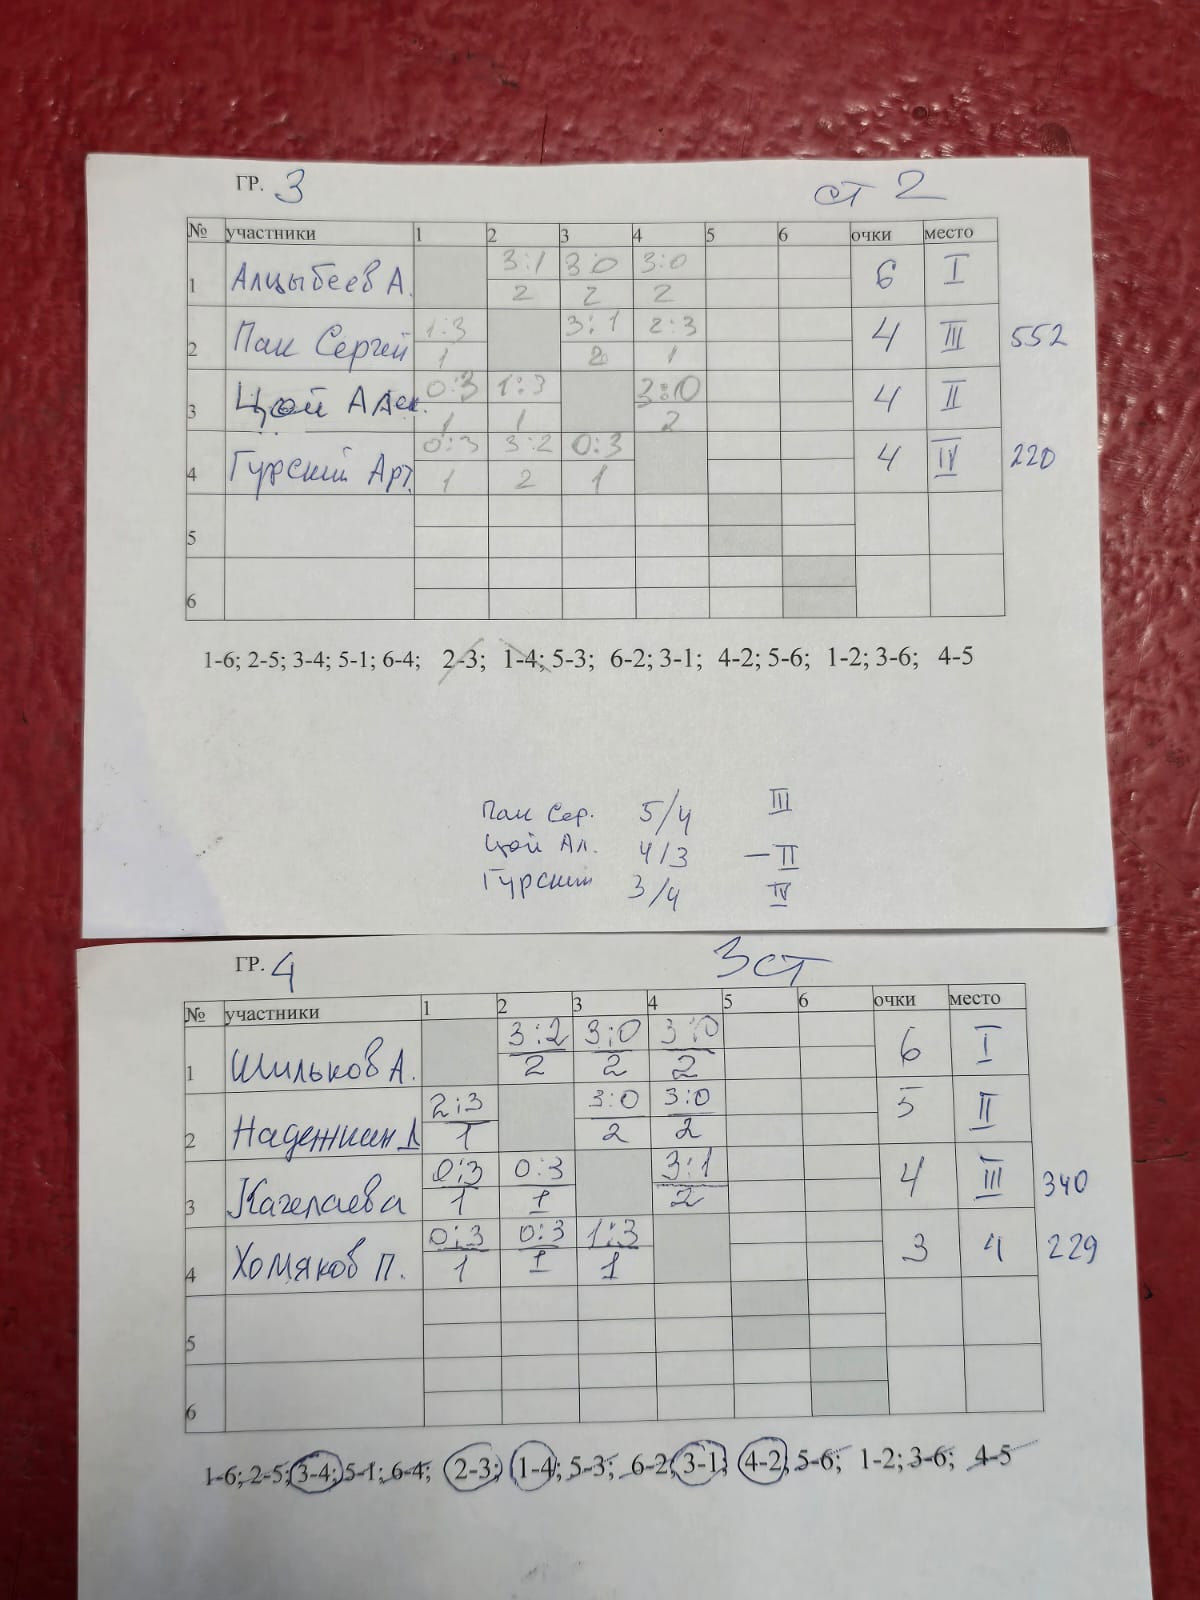 ГР. 3 ст 2
№ участники 1 2 3 4 5 6 очки место
1 Алцыбеев А. 3:1 3:0 3:0 6 I
2 2 2
2 Пак Сергей 1:3 3:1 2:3 4 III 552
1 2 1
3 Цой Алек. 0:3 1:3 3:0 4 II
1 1 2
4 Гурский Арт. 0:3 3:2 0:3 4 IV 220
1 2 1
5
6
1-6; 2-5; 3-4; 5-1; 6-4; 2-3; 1-4; 5-3; 6-2; 3-1; 4-2; 5-6; 1-2; 3-6; 4-5
Пак Сер. 5/4 III
Цой Ал. 4/3 – II
Гурский 3/4 IV
ГР. 4 3 ст
№ участники 1 2 3 4 5 6 очки место
1 Шильков А. 3:2 3:0 3:0 6 I
2 2 2
2 Надежкин Д 2:3 3:0 3:0 5 II
1 2 2
3 Качелаева 0:3 0:3 3:1 4 III 340
1 1 2
4 Хомяков П. 0:3 0:3 1:3 3 4 229
1 1 1
5
6
1-6; 2-5; 3-4; 5-1; 6-4; 2-3; 1-4; 5-3; 6-2; 3-1; 4-2; 5-6; 1-2; 3-6; 4-5